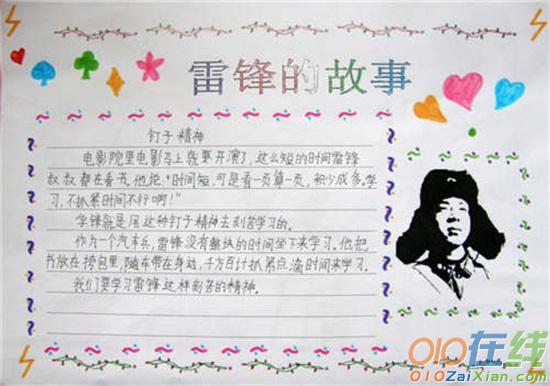 雷锋的故事
钉子精神
电影院里电影马上就要开演了，这么短的时间雷锋
叔叔都在看书。他说：“时间短，可是看一页算一页，积少成多，学
习，不抓紧时间不行啊！”
学锋就是用这种钉子精神去刻苦学习的。
作为一个汽车兵，雷锋没有整块的时间坐下来学习。他把
书放在挎包里，随车带在身边，千方百计抓紧点滴时间来学习。
我们要学习雷锋这样刻苦的精神。
010在线
010ZaiXian.com